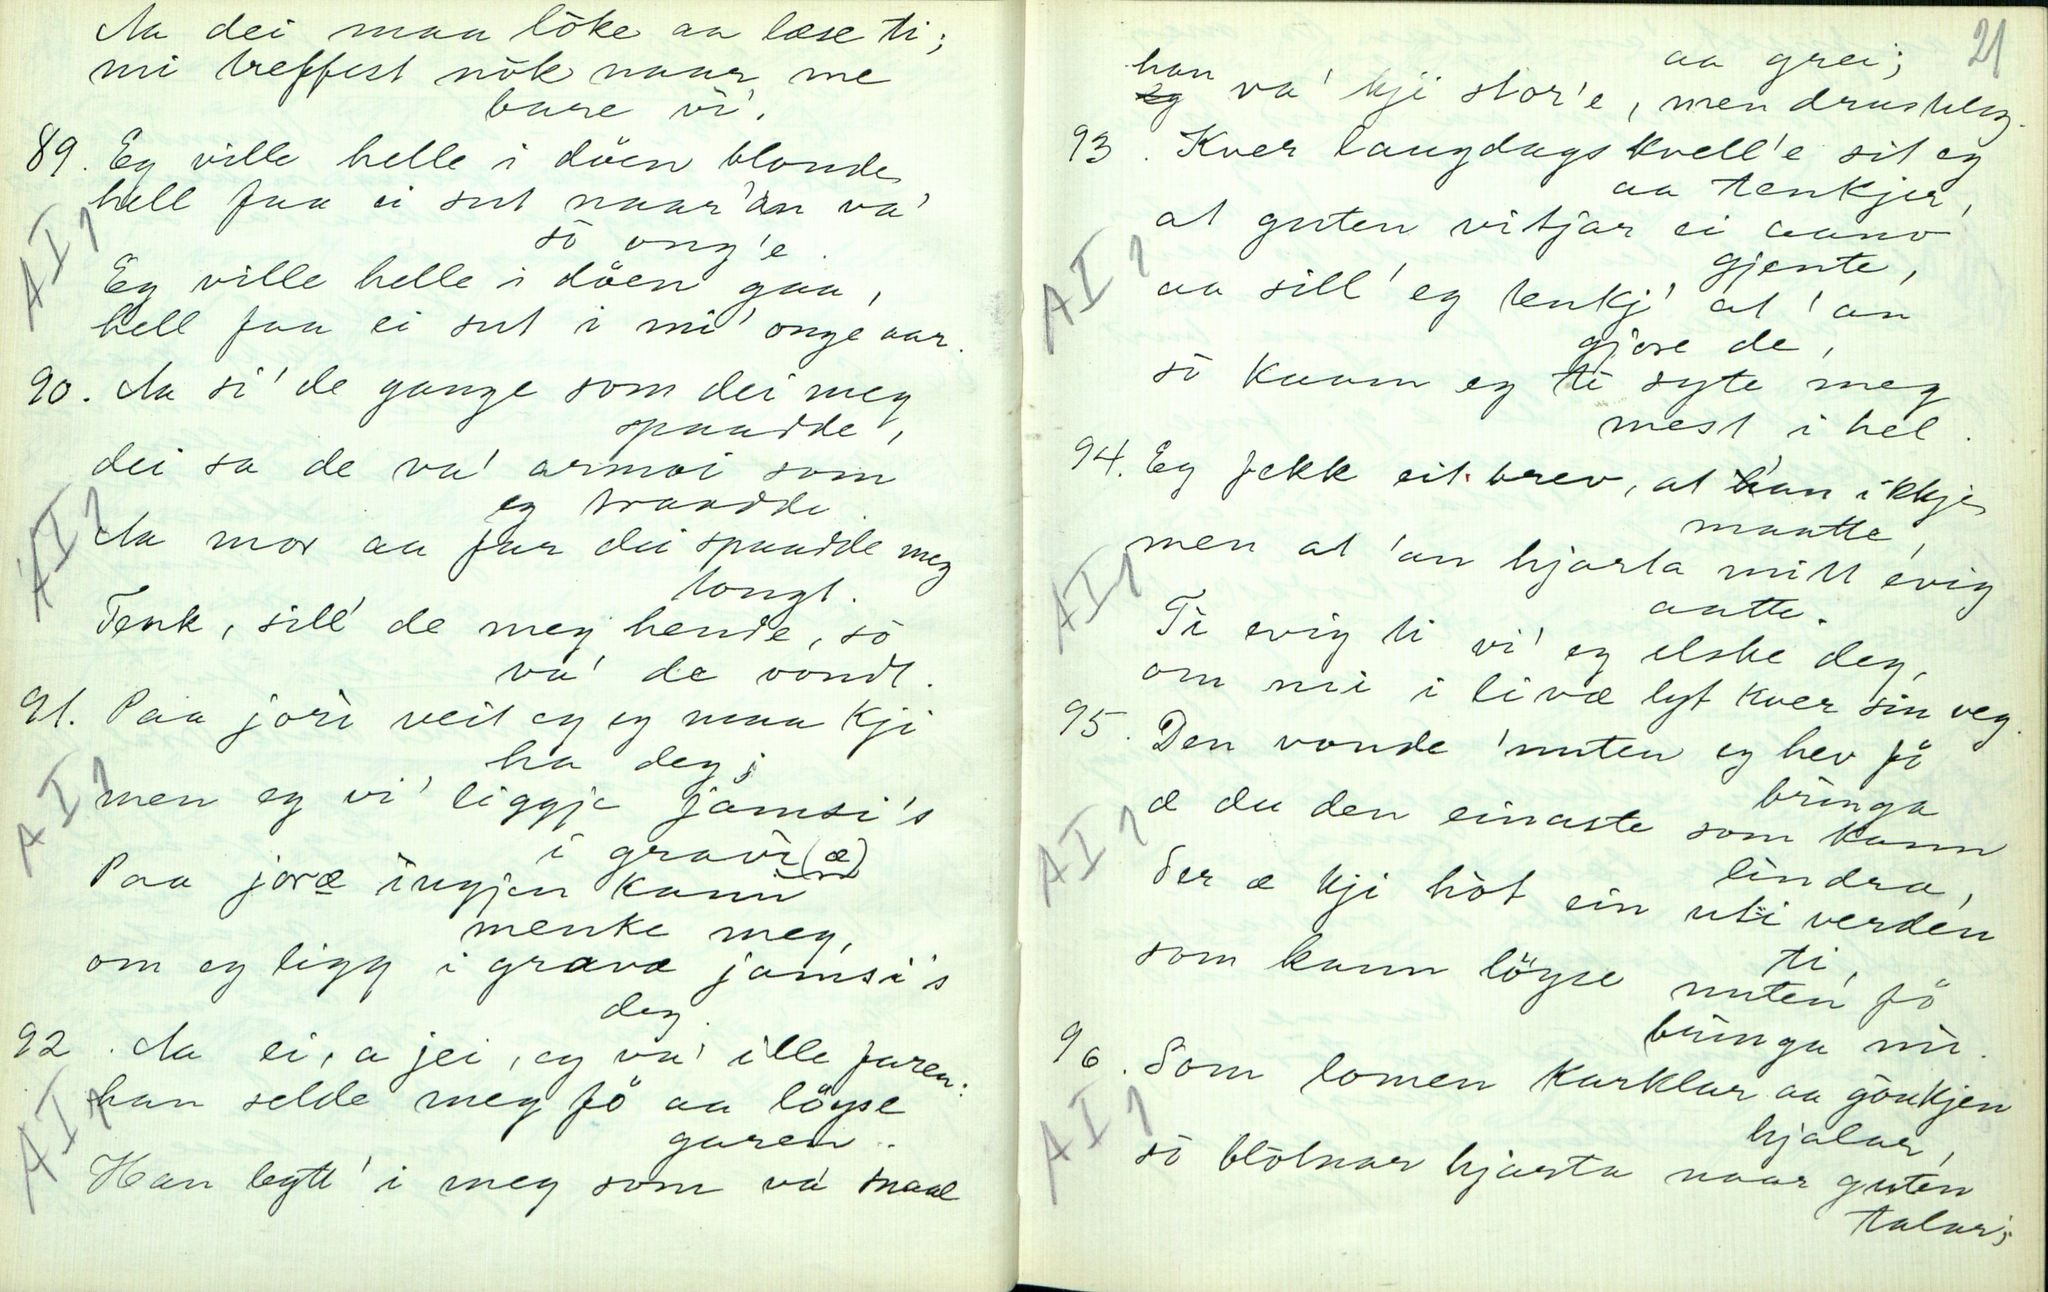 Aa dei maa löke aa læse ti;
mi treffest nök naar me
bare vi'.
89. Eg ville helle i döen blonde,
hell faa ei sut naar 'an va'
so ong'e.
AI1
Eg ville helle i döen gaa,
hell faa ei sut i mi' onge aar.
90. Aa si' de gange som dei meg
spaadde,
dei sa de va' armoi som
eg traadde.
AI1
Aa mor aa far dei spaadde meg
tongt.
Tenk, sill' de meg hende, so
va' de vondt.
91. Paa jori veit eg eg maa kji
ha deg;
AI1
men eg vi' liggje jamsi's
i gravi (æ)
Paa joræ ingjen kann
menke meg,
om eg ligg i gravæ jamsi's
deg.
92. Aa ei, a jei, eg va' ille faren:
AI1
han selde meg fö aa löyse
garen.
Han bytt' i meg som va' smaal
21
aa grei;
han
Eg va' kji stor'e, men drusteleg.
93. Kver laugdagskvell'e sit eg
aa tenkjer,
at guten vitjar ei aano
gjente,
AI1
aa sill' eg tenkj' at 'an
gjore de,
so kaam eg ti syte meg
mest i hel.
94. Eg fekk eit brev, at han ikkje
maatte,
AI1
men at 'an hjarta mitt evig
aatte.
Ti evig ti vi' eg elske deg,
om mi i livæ lyt kver sin veg.
95. Den vonde 'nuten eg hev fö
bringa
AI1
æ du den einaste som kann
lindra,
Der æ kji hot ein uti verden
ti,
som kann löyse nuten fö
bringa mi.
96. Som lomen karklar aa gaukjen
hjalar,
AI1
so blotnar hjarta naar guten
talar;